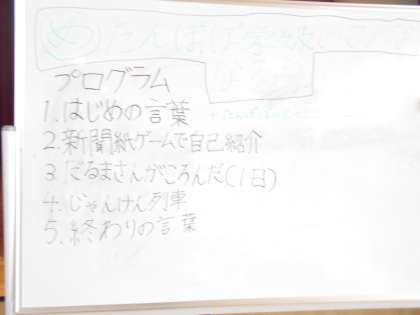 め たんぽぽ学級
プログラム
1. はじめの言葉
2. 新聞紙ゲームで自己紹介
3. だるまさんがころんだ(1日)
4. じゃんけん列車
5. 終わりの言葉